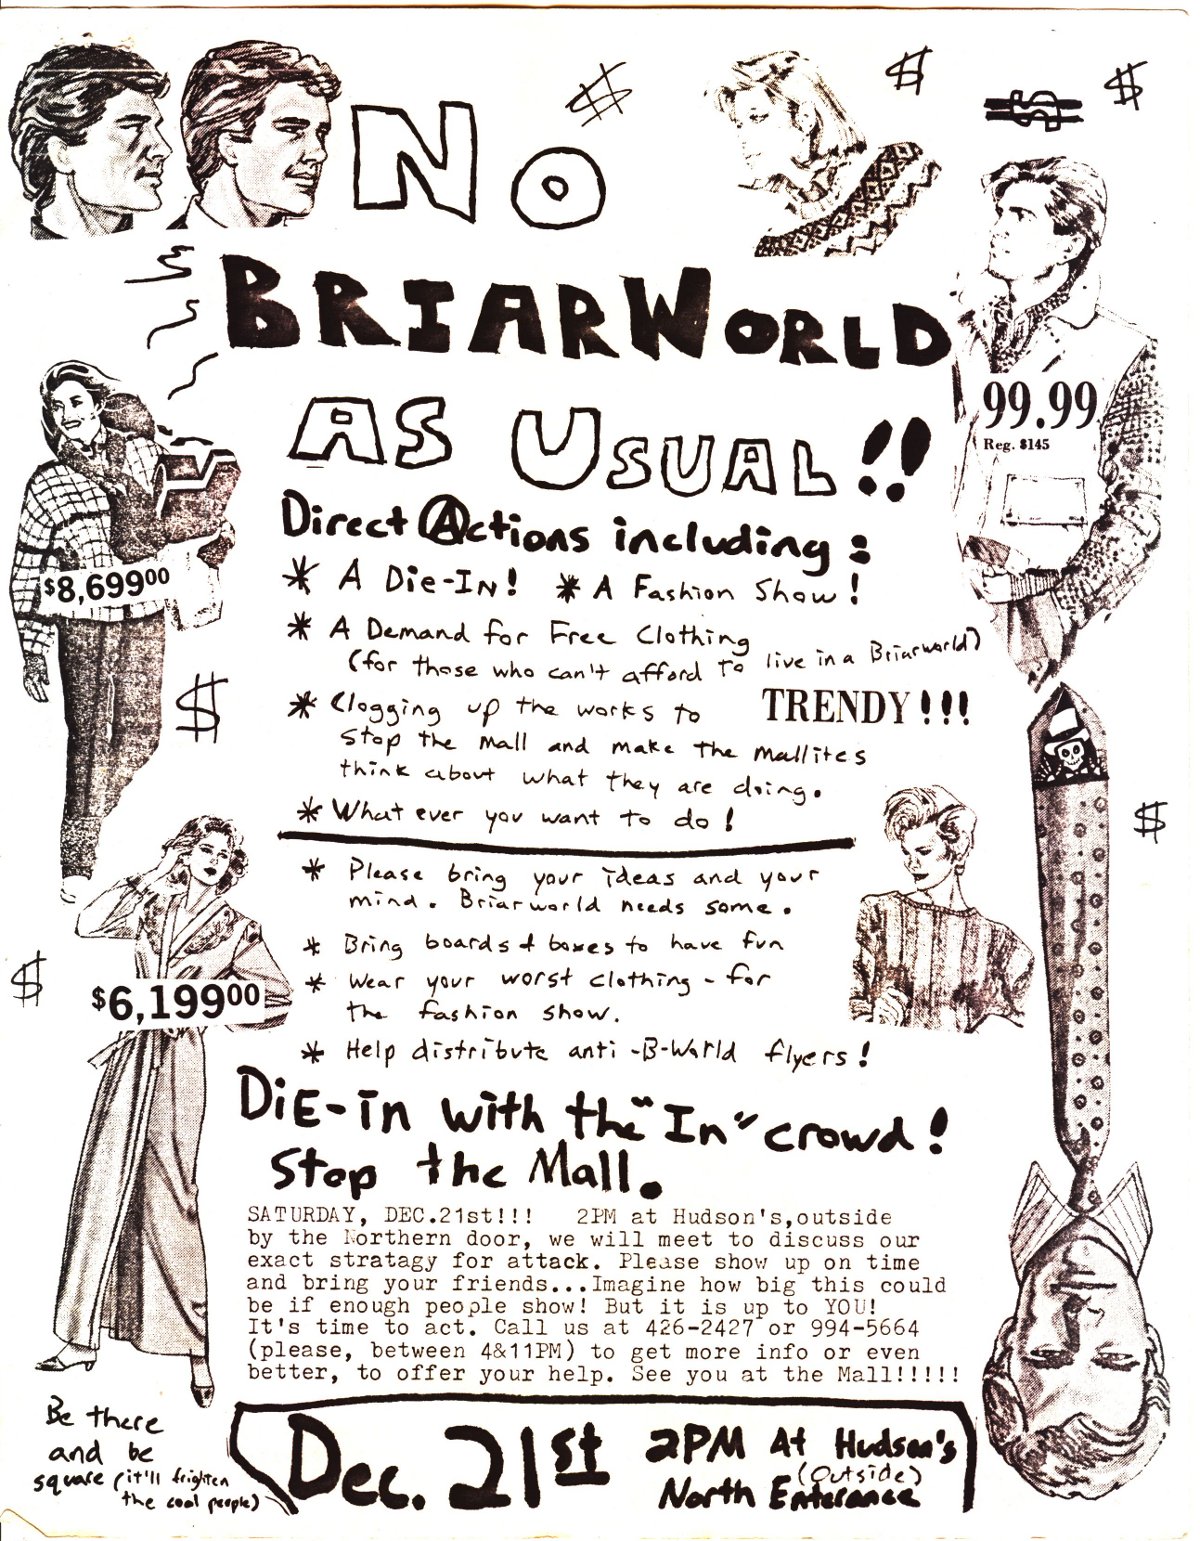 No
BRIARWORLD
99.99
Reg. $145
AS USUAL!!
Direct Actions including:
* A Die-In! * A Fashion Show!
$8,699⁰⁰
* A Demand for Free Clothing
(for those who can't afford to live in a Briarworld)
* Clogging up the works to
TRENDY!!!
stop the mall and make the mallites
think about what they are doing.
* What ever you want to do!
* Please bring your ideas and your
mind. Briarworld needs some.
* Bring boards & boxes to have fun
* Wear your worst clothing - for
the fashion show.
$6,199⁰⁰
* Help distribute anti-B-World flyers!
DiE-in with the "In" crowd!
Stop the Mall.
SATURDAY, DEC.21st!!! 2PM at Hudson's,outside
by the Northern door, we will meet to discuss our
exact stratagy for attack. Please show up on time
and bring your friends...Imagine how big this could
be if enough people show! But it is up to YOU!
It's time to act. Call us at 426-2427 or 994-5664
(please, between 4&11PM) to get more info or even
better, to offer your help. See you at the Mall!!!!!
Be there
and be
square (it'll frighten
the cool people)
Dec. 21st
2PM At Hudson's
(Outside)
North Enterance